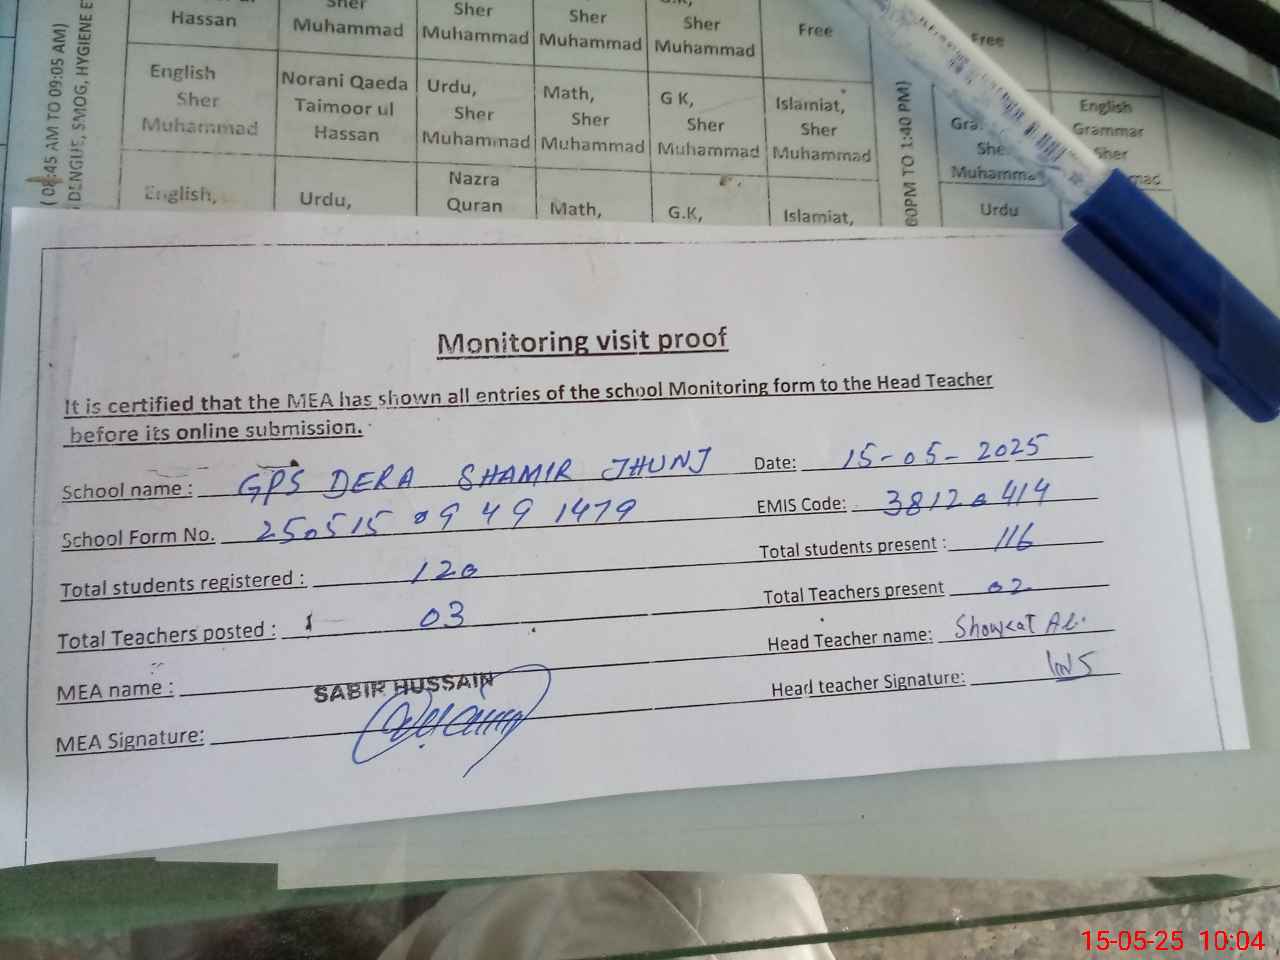 Hassan
Sher
Muhammad
Sher
Muhammad
Sher
Muhammad
Sher
Muhammad
Free
Free
( 08:45 AM TO 09:05 AM)
DENGUE, SMOG, HYGIENE
English
Sher
Muhammad
Norani Qaeda
Taimoor ul
Hassan
Urdu,
Sher
Muhammad
Math,
Sher
Muhammad
G K,
Sher
Muhammad
Islamiat,
Sher
Muhammad
PM TO 1:40 PM)
English
Grammar
Sher
English,
Urdu,
Nazra
Quran
Math,
G.K,
Islamiat,
Urdu
Monitoring visit proof
It is certified that the MEA has shown all entries of the school Monitoring form to the Head Teacher
before its online submission.
School name : GPS DERA SHAMIR JHUNJ Date: 15-05-2025
School Form No. 250515 09 49 1479 EMIS Code: 38120414
Total students registered : 120 Total students present : 116
Total Teachers posted : 03 Total Teachers present 02
MEA name : SABIR HUSSAIN Head Teacher name: Showkat Ali
MEA Signature: Head teacher Signature:
15-05-25 10:04